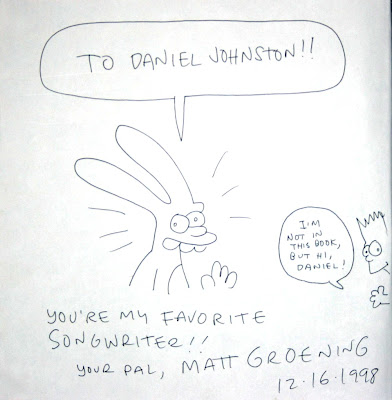 TO DANIEL JOHNSTON!!
I'M
NOT IN
THIS BOOK,
BUT HI,
DANIEL!
YOU'RE MY FAVORITE
SONGWRITER!!
YOUR PAL, MATT GROENING
12.16.1998